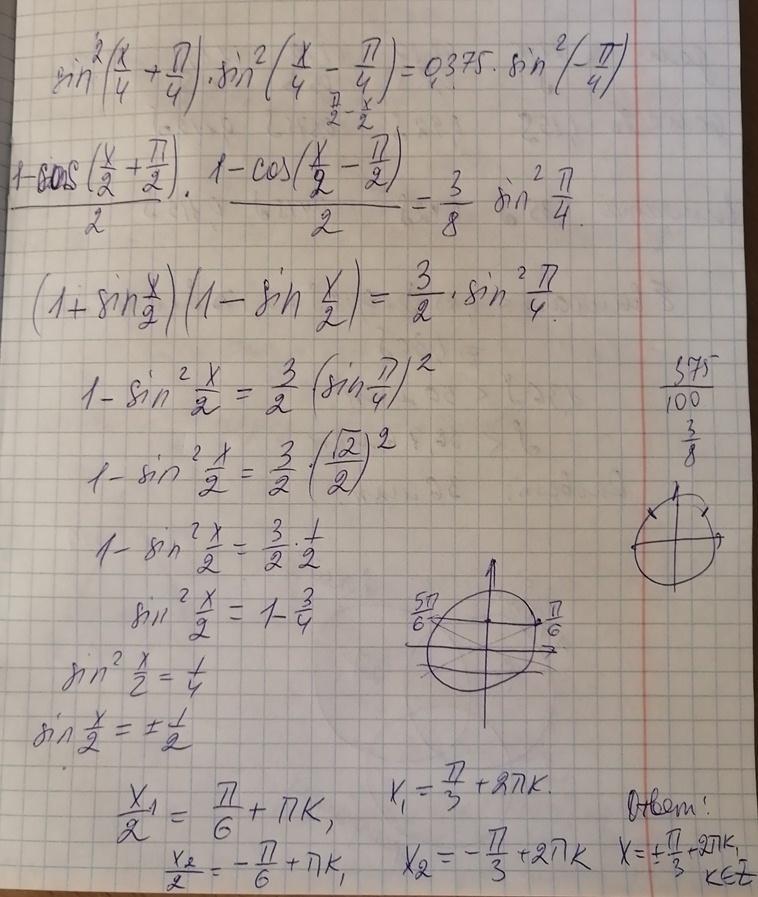 sin²(x/4 + π/4) · sin²(x/4 − π/4) = 0,375 · sin²(−π/4)
π/2 − x/2
(1 − cos(x/2 + π/2))/2 · (1 − cos(x/2 − π/2))/2 = 3/8 sin² π/4
(1 + sin x/2)(1 − sin x/2) = 3/2 · sin² π/4
1 − sin² x/2 = 3/2 (sin π/4)²
375/100
3/8
1 − sin² x/2 = 3/2 · (√2/2)²
1 − sin² x/2 = 3/2 · 1/2
sin² x/2 = 1 − 3/4
5π/6 π/6
sin² x/2 = 1/4
sin x/2 = ± 1/2
x₁/2 = π/6 + πk, x₁ = π/3 + 2πk.
x₂/2 = −π/6 + πk, x₂ = −π/3 + 2πk
Ответ:
x = ± π/3 + 2πk,
k∈Z